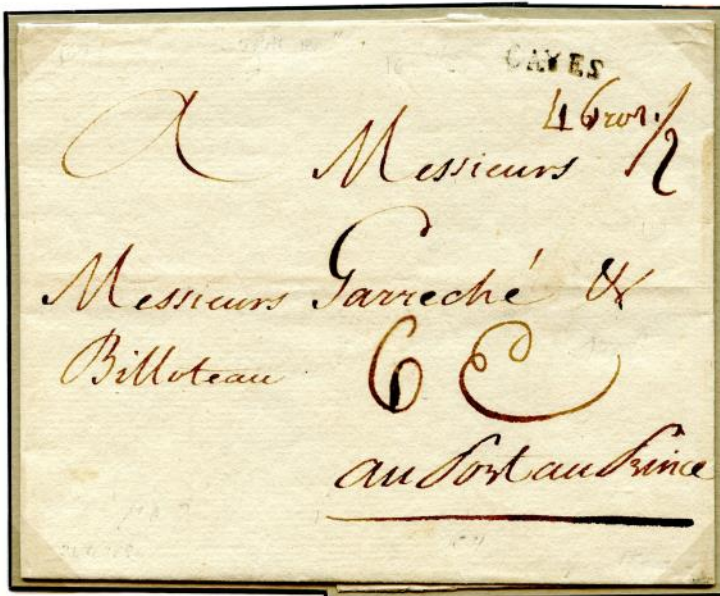 CAYES
A Messieurs
Messieurs Garreché &
Billoteau
au Port au Prince